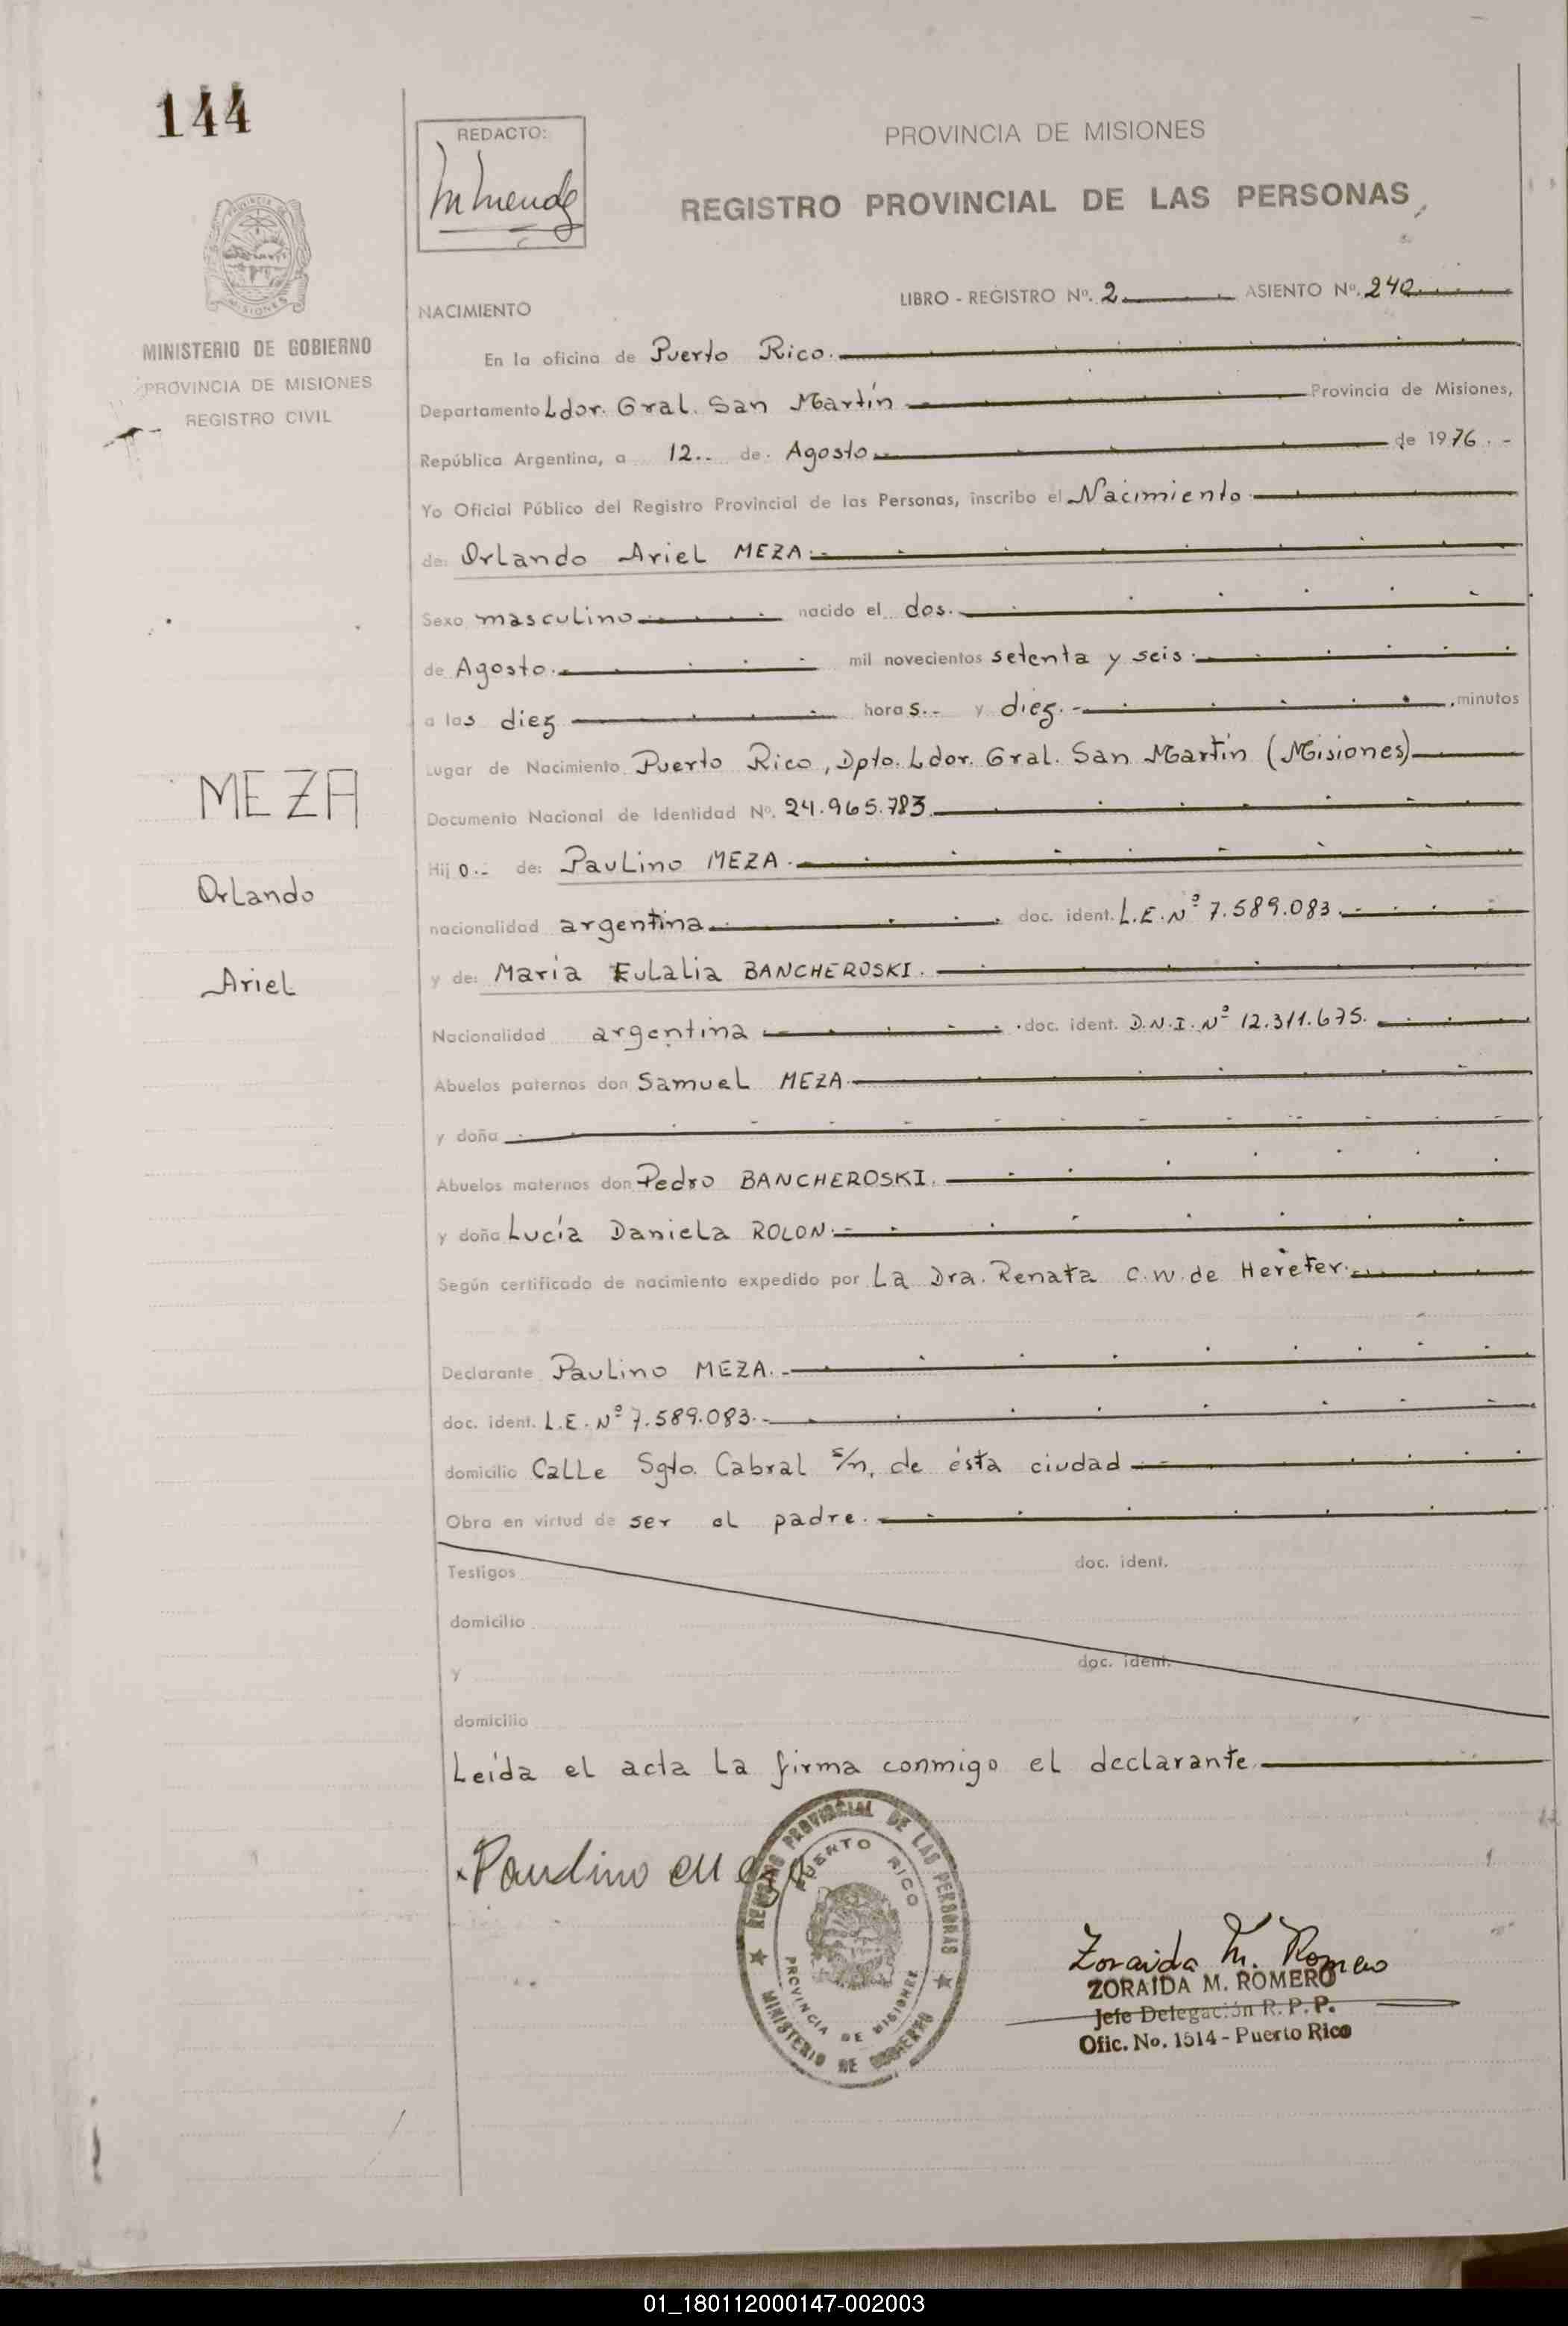 144
REDACTO:
PROVINCIA DE MISIONES
REGISTRO PROVINCIAL DE LAS PERSONAS
MINISTERIO DE GOBIERNO
PROVINCIA DE MISIONES
REGISTRO CIVIL
LIBRO - REGISTRO Nº. 2 ASIENTO Nº. 240
NACIMIENTO
En la oficina de Puerto Rico.
Departamento Ldor. Gral. San Martín Provincia de Misiones,
República Argentina, a 12.. de Agosto de 1976.-
Yo Oficial Público del Registro Provincial de las Personas, inscribo el Nacimiento
de: Orlando Ariel MEZA
Sexo masculino nacido el dos.
de Agosto. mil novecientos setenta y seis
a las diez horas.- y diez.- minutos
Lugar de Nacimiento Puerto Rico, Dpto. Ldor. Gral. San Martín (Misiones)
Documento Nacional de Identidad Nº. 24.965.783.
MEZA
Orlando
Ariel
Hijo.- de: Paulino MEZA
nacionalidad argentina doc. ident. L.E. Nº 7.589.083.
y de: María Eulalia BANCHEROSKI.
Nacionalidad argentina doc. ident. D.N.I. Nº 12.311.675.
Abuelos paternos don Samuel MEZA
y doña
Abuelos maternos don Pedro BANCHEROSKI.
y doña Lucía Daniela ROLON
Según certificado de nacimiento expedido por La Dra. Renata C.W. de Hereter.
Declarante Paulino MEZA.-
doc. ident. L.E. Nº 7.589.083.-
domicilio Calle Sgto. Cabral s/n, de ésta ciudad
Obra en virtud de ser el padre.
Testigos doc. ident.
domicilio
y doc. ident.
domicilio
Leída el acta la firma conmigo el declarante
REGISTRO PROVINCIAL DE LAS PERSONAS
PUERTO RICO
PROVINCIA DE MISIONES
MINISTERIO DE GOBIERNO
Zoraida M. Romero
ZORAIDA M. ROMERO
Jefe Delegación R. P. P.
Ofic. No. 1514 - Puerto Rico
01_180112000147-002003